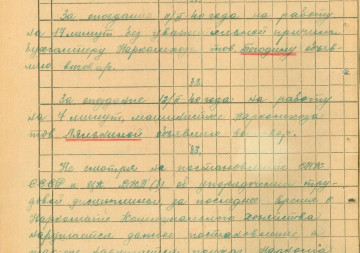 За опоздание 2/V 40 года на работу
на 17 минут без уважительной причины
бухгалтеру Наркомхоза тов. объяв-
ляю выговор.
За опоздание 12/V 40 года на работу
на 4 минут, машинистке Наркомхоза
тов. объявляю выговор.
Не смотря на постановление СНК
СССР и ЦК ВКП(б) об упорядочении тру-
довой дисциплины, за последнее время в
Наркомате Коммунального хозяйства
нарушается данное постановление и